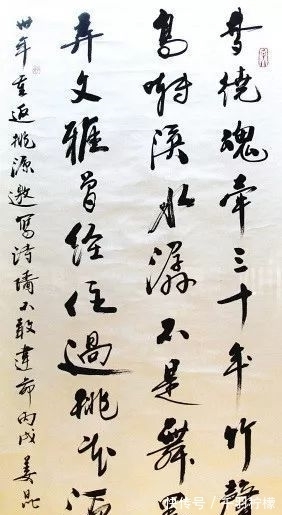 梦绕魂牵三十年竹
鸟溪水潺不是舞
弄文雅曾经住过桃花源
卅年重返桃源邀写诗墙不敢违命丙戌姜昆
快传号/